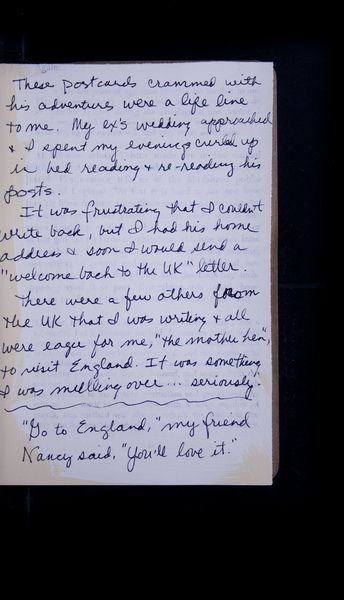 These postcards crammed with
his adventures were a life line
to me. My ex's wedding approached
& I spent my evenings curled up
in bed reading & re-reading his
posts.
It was frustrating that I couldn't
write back, but I had his home
address & soon I would send a
"welcome back to the UK" letter.
There were a few others from
the UK that I was writing & all
were eager for me, "the mother hen",
to visit England. It was something
I was mulling over... seriously.
"Go to England," my friend
Nancy said, "You'll love it."